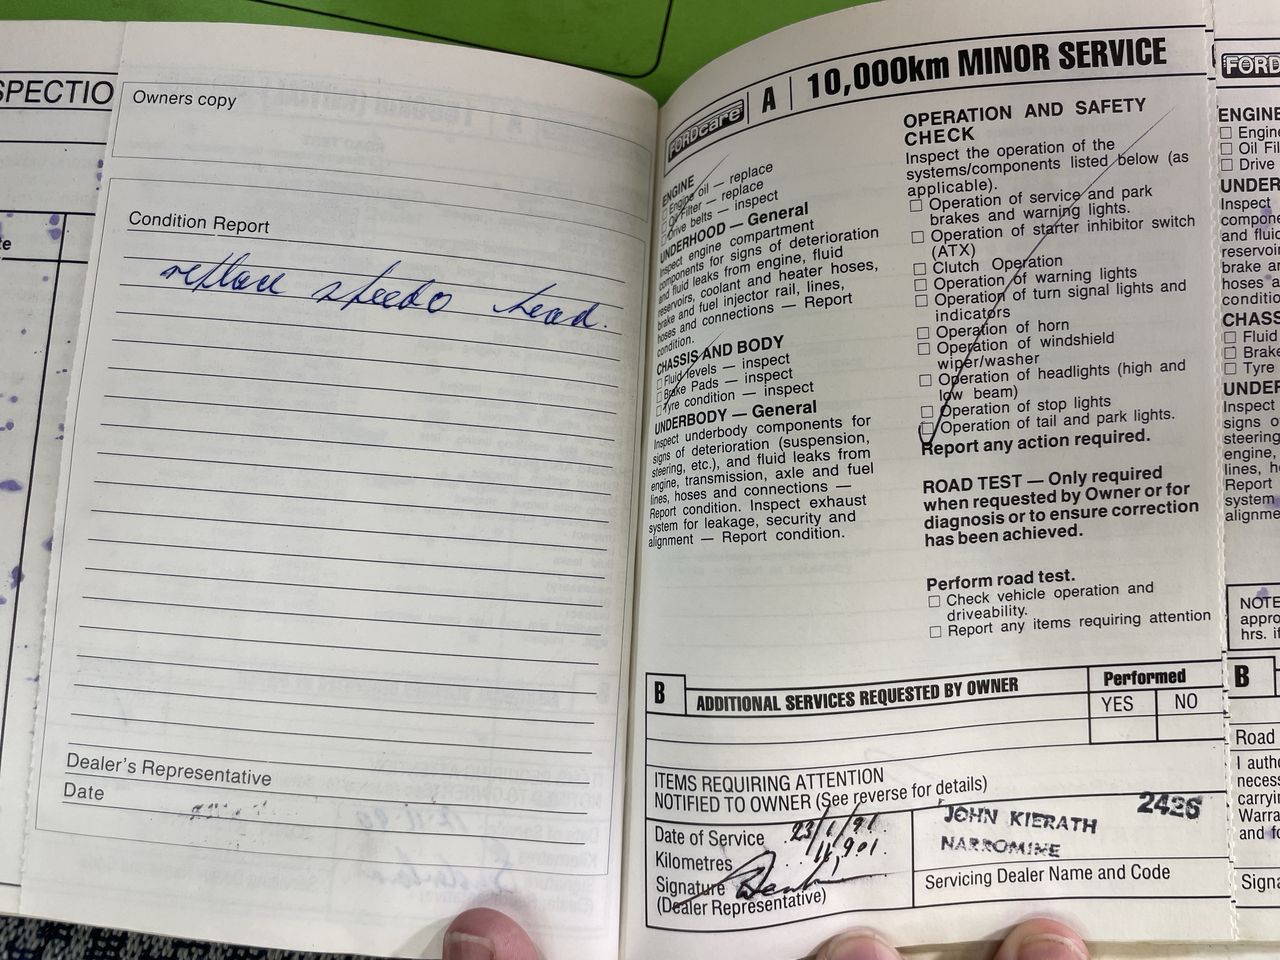 SPECTIO
te
Owners copy
Condition Report
replace speedo head.
Dealer's Representative
Date
FORDcare A 10,000km MINOR SERVICE
ENGINE
□ Engine oil — replace
□ Oil Filter — replace
□ Drive belts — inspect
UNDERHOOD — General
Inspect engine compartment
components for signs of deterioration
and fluid leaks from engine, fluid
reservoirs, coolant and heater hoses,
brake and fuel injector rail, lines,
hoses and connections — Report
condition.
CHASSIS AND BODY
□ Fluid levels — inspect
□ Brake Pads — inspect
□ Tyre condition — inspect
UNDERBODY — General
Inspect underbody components for
signs of deterioration (suspension,
steering, etc.), and fluid leaks from
engine, transmission, axle and fuel
lines, hoses and connections —
Report condition. Inspect exhaust
system for leakage, security and
alignment — Report condition.
OPERATION AND SAFETY
CHECK
Inspect the operation of the
systems/components listed below (as
applicable).
□ Operation of service and park
brakes and warning lights.
□ Operation of starter inhibitor switch
(ATX)
□ Clutch Operation
□ Operation of warning lights
□ Operation of turn signal lights and
indicators
□ Operation of horn
□ Operation of windshield
wiper/washer
□ Operation of headlights (high and
low beam)
□ Operation of stop lights
□ Operation of tail and park lights.
Report any action required.
ROAD TEST — Only required
when requested by Owner or for
diagnosis or to ensure correction
has been achieved.
Perform road test.
□ Check vehicle operation and
driveability.
□ Report any items requiring attention
B ADDITIONAL SERVICES REQUESTED BY OWNER
Performed
YES NO
ITEMS REQUIRING ATTENTION
NOTIFIED TO OWNER (See reverse for details)
Date of Service 23/1/91
Kilometres 11,901.
Signature
(Dealer Representative)
2426
JOHN KIERATH
NARROMINE
Servicing Dealer Name and Code
FORD
ENGINE
□ Engine
□ Oil Fil
□ Drive
UNDER
Inspect
compone
and fluid
reservoir
brake an
hoses a
conditio
CHASS
□ Fluid
□ Brake
□ Tyre
UNDER
Inspect
signs o
steering
engine,
lines, h
Report
system
alignme
NOTE
appro
hrs. if
B
Road
I autho
necess
carryin
Warra
and fo
Signa